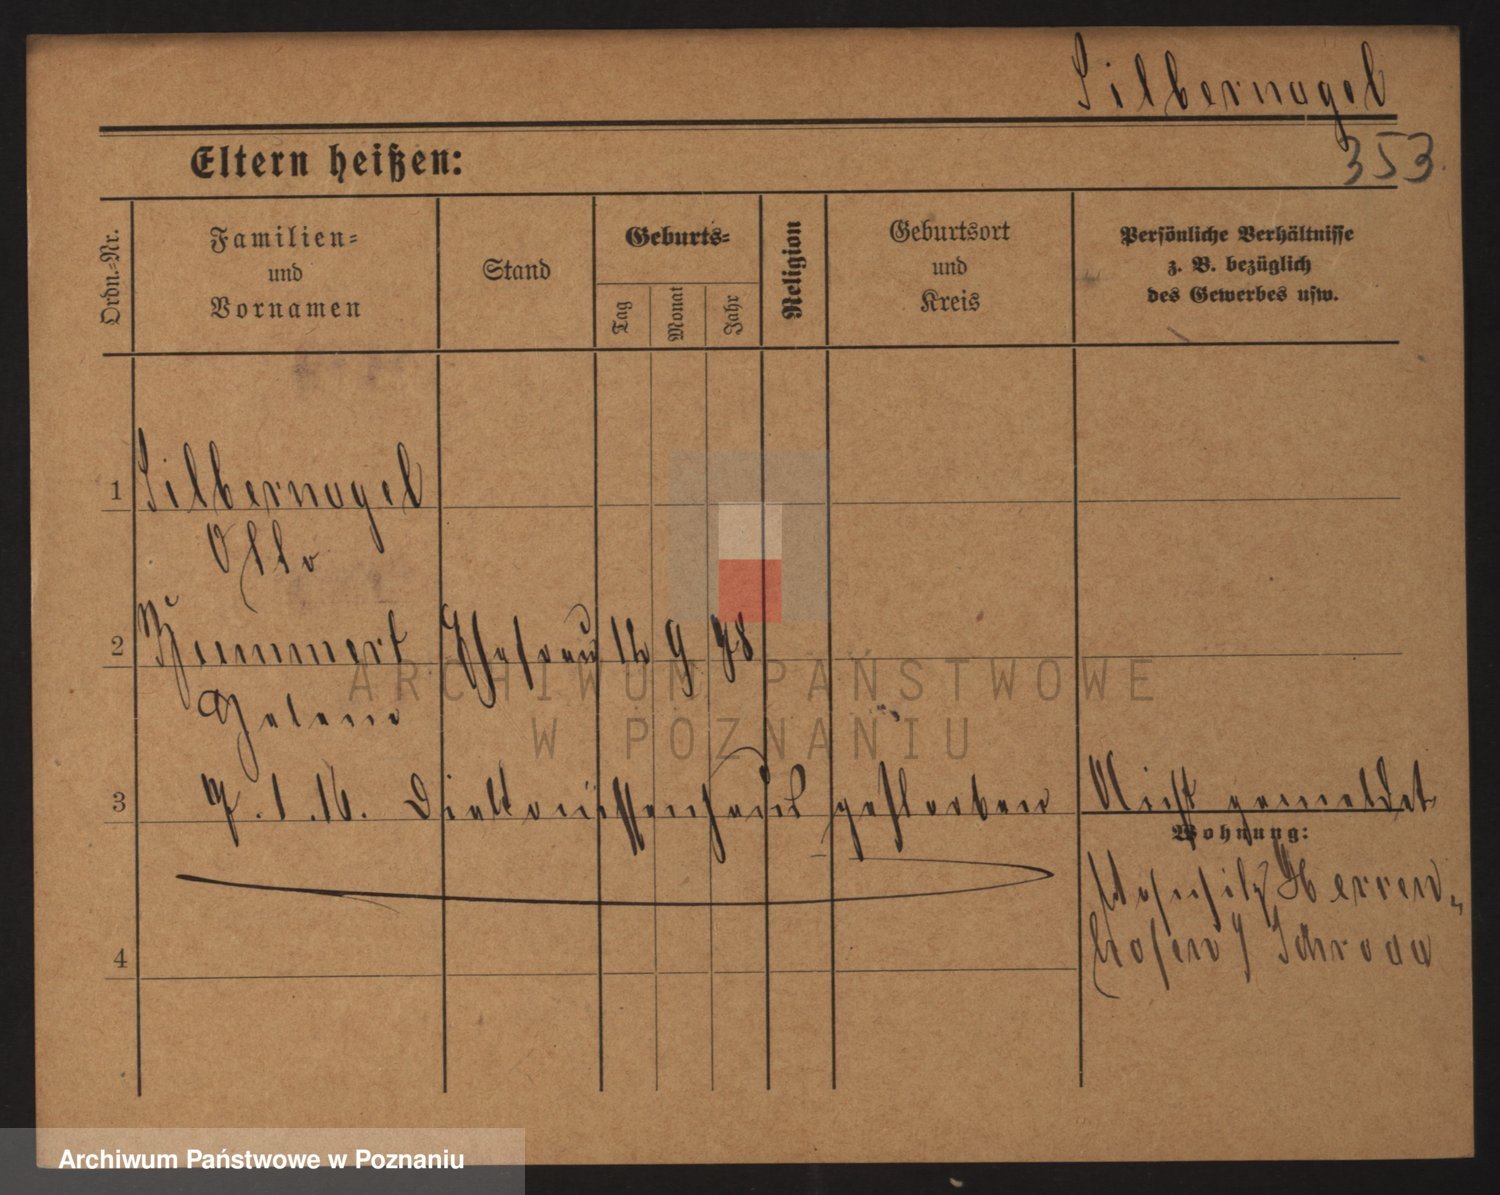 Silbernagel
353.
Eltern heißen:
Ordn.=Nr.
Familien=
und
Vornamen
Stand
Geburts=
Tag
Monat
Jahr
Religion
Geburtsort
und
Kreis
Persönliche Verhältnisse
z. B. bezüglich
des Gewerbes usw.
1
Silbernagel
Otto
2
Ehefrau
9
78
Helene
3
7.1.16.
gestorben
Nicht gemeldet
Wohnung:
Herren-
hofen
Schroda
4
ARCHIWUM PAŃSTWOWE
W POZNANIU
Archiwum Państwowe w Poznaniu